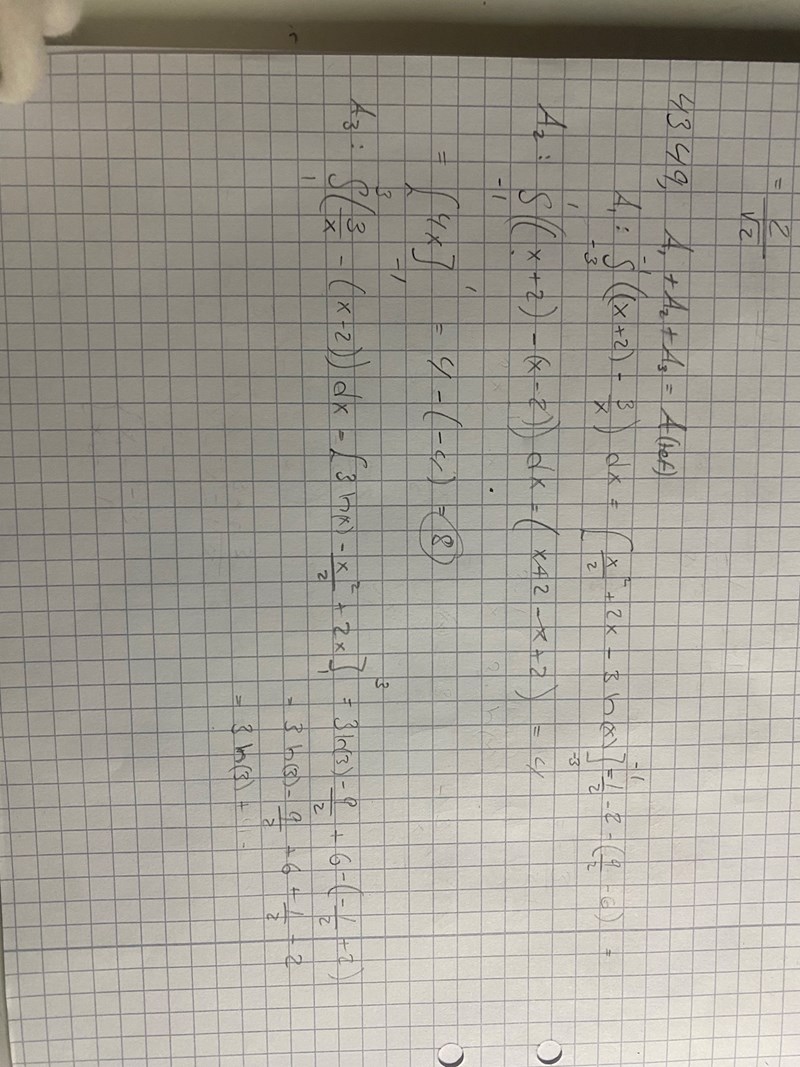 = 2/√2
4349, A₁ + A₂ + A₃ = A(tot)
A₁ : ∫₋₃⁻¹ ((x+2) - 3/x) dx = [x²/2 + 2x - 3 ln(x)]₋₃⁻¹ = 1/2 - 2 - (9/2 - 6) =
A₂ : ∫₋₁¹ ((x+2) - (x-2)) dx = (x+2 - x+2) = 4
= [4x]₋₁¹ = 4 - (-4) = 8
A₃ : ∫₁³ (3/x - (x-2)) dx = [3 ln(x) - x²/2 + 2x]₁³ = 3 ln(3) - 9/2 + 6 - (-1/2 + 2)
= 3 ln(3) - 9/2 + 6 + 1/2 - 2
= 3 ln(3) +